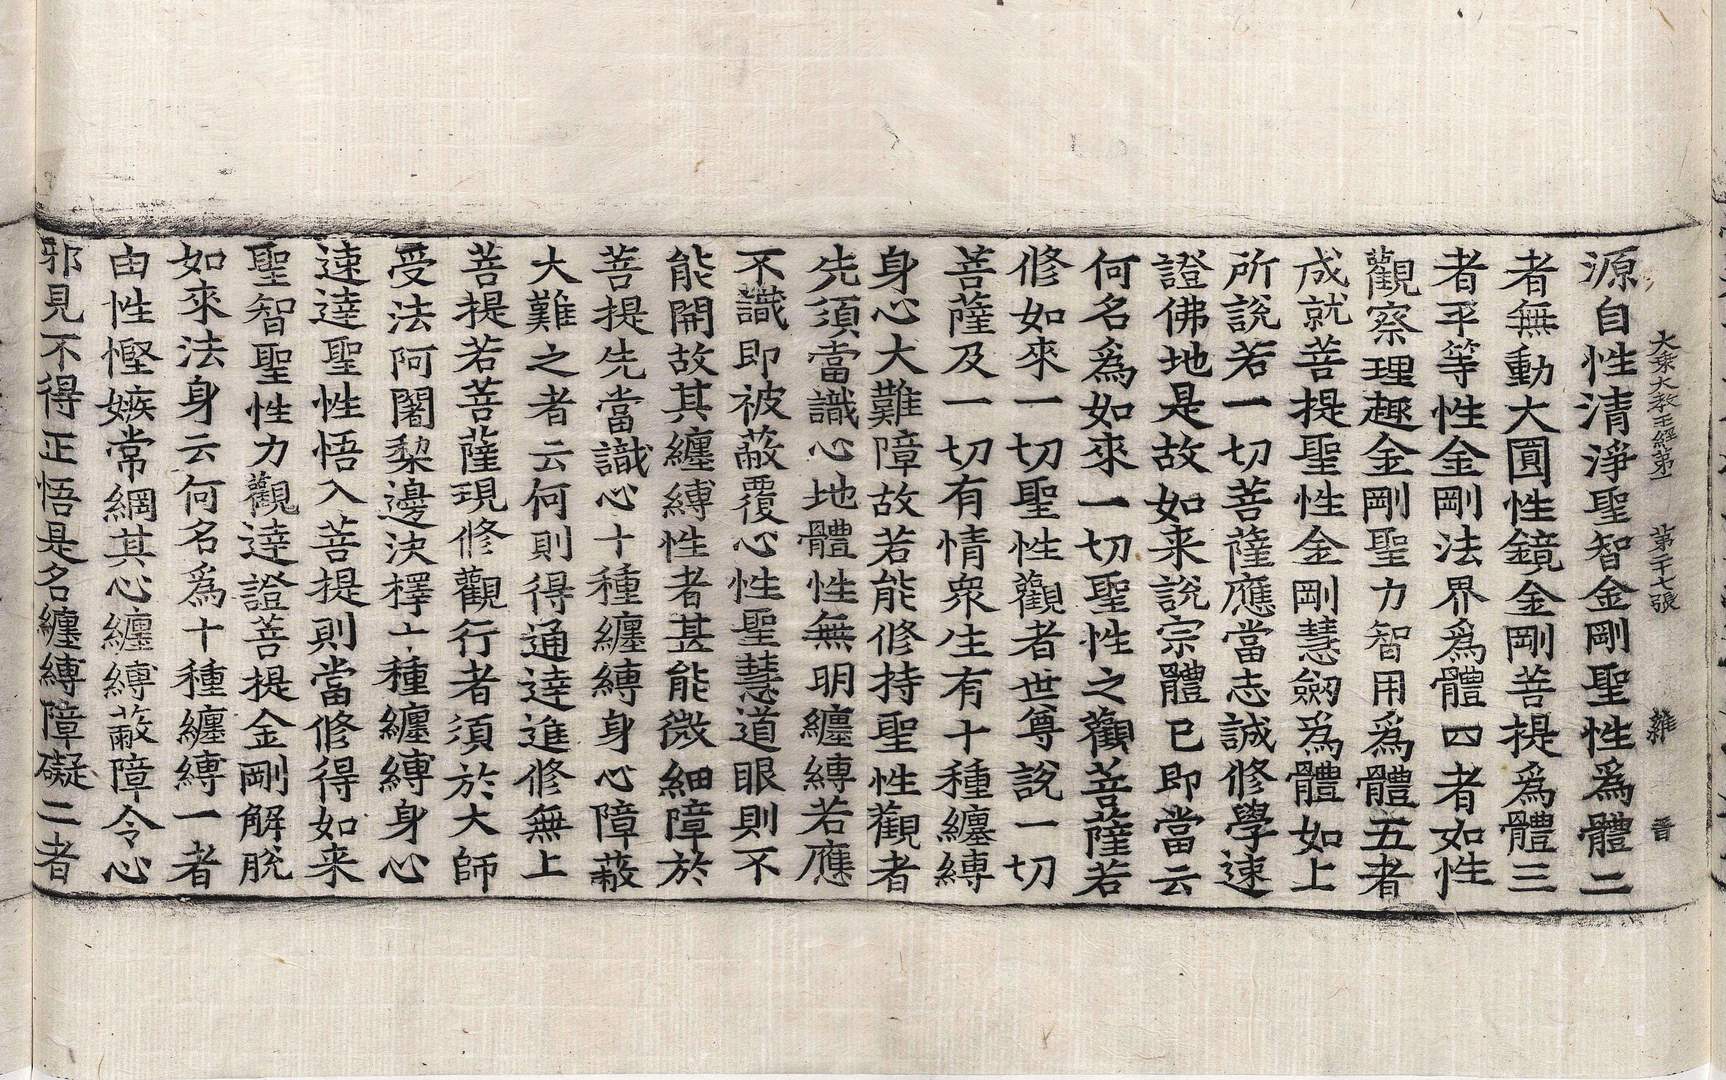 大乗大教王経第一 第二十七張 維 晋
源自性清淨聖智金剛聖性爲體二
者無動大圓性鏡金剛菩提爲體三
者平等性金剛法界爲體四者如性
觀察理趣金剛聖力智用爲體五者
成就菩提聖性金剛慧劒爲體如上
所說若一切菩薩應當志誠修學速
證佛地是故如来說宗體已即當云
何名爲如來一切聖性之觀菩薩若
修如來一切聖性觀者世尊說一切
菩薩及一切有情衆生有十種纏縛
身心大難障故若能修持聖性觀者
先須當識心地體性無明纏縛若應
不識即被蔽覆心性聖慧道眼則不
能開故其纏縛性者甚能微細障於
菩提先當識心十種纏縛身心障蔽
大難之者云何則得通達進修無上
菩提若菩薩現修觀行者須於大師
受法阿闍梨邊決擇十種纏縛身心
速達聖性悟入菩提則當修得如来
聖智聖性力觀達證菩提金剛解脫
如來法身云何名爲十種纏縛一者
由性慳嫉常網其心纏縛蔽障令心
邪見不得正悟是名纏縛障礙二者